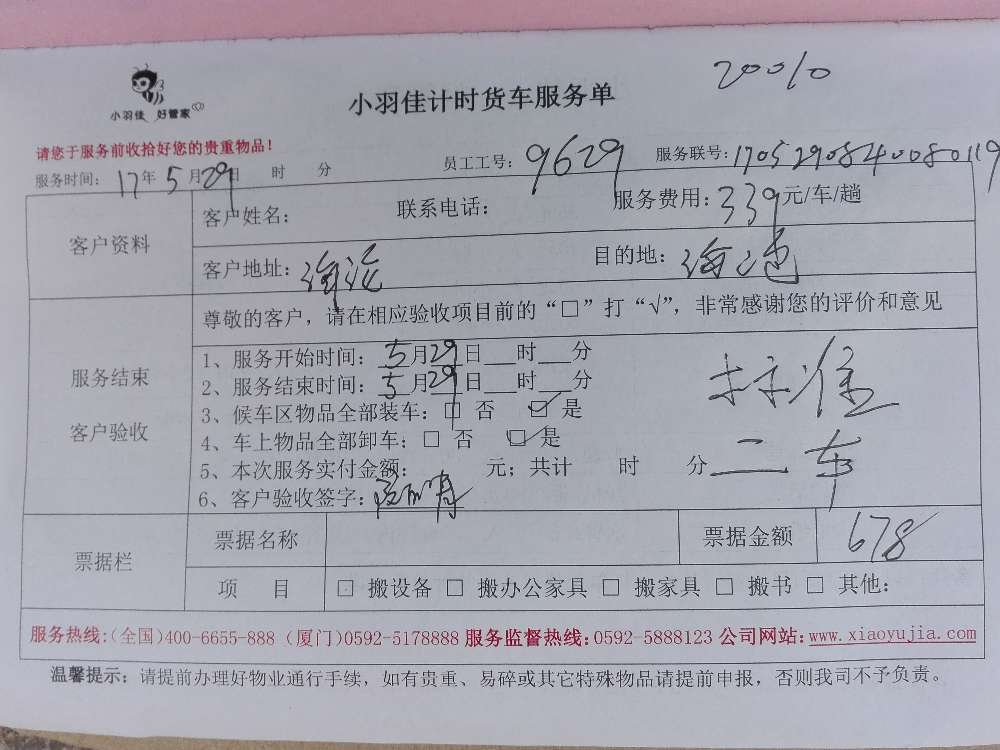 20010
小羽佳 好管家
小羽佳计时货车服务单
请您于服务前收拾好您的贵重物品！
员工工号：9629
服务联号：1705290840080119
服务时间：17年5月29日 时 分
客户资料
客户姓名： 联系电话： 服务费用：339元/车/趟
客户地址： 目的地：海沧
尊敬的客户，请在相应验收项目前的“□”打“√”，非常感谢您的评价和意见
服务结束
客户验收
1、服务开始时间：5月29日 时 分
2、服务结束时间：5月29日 时 分
3、候车区物品全部装车：□ 否 ☑ 是
4、车上物品全部卸车：□ 否 ☑ 是
5、本次服务实付金额： 元；共计 时 分
6、客户验收签字：
二车
票据栏
票据名称 票据金额 678
项 目 □ 搬设备 □ 搬办公家具 □ 搬家具 □ 搬书 □ 其他：
服务热线：(全国)400-6655-888 (厦门)0592-5178888 服务监督热线：0592-5888123 公司网站：www.xiaoyujia.com
温馨提示：请提前办理好物业通行手续，如有贵重、易碎或其它特殊物品请提前申报，否则我司不予负责。